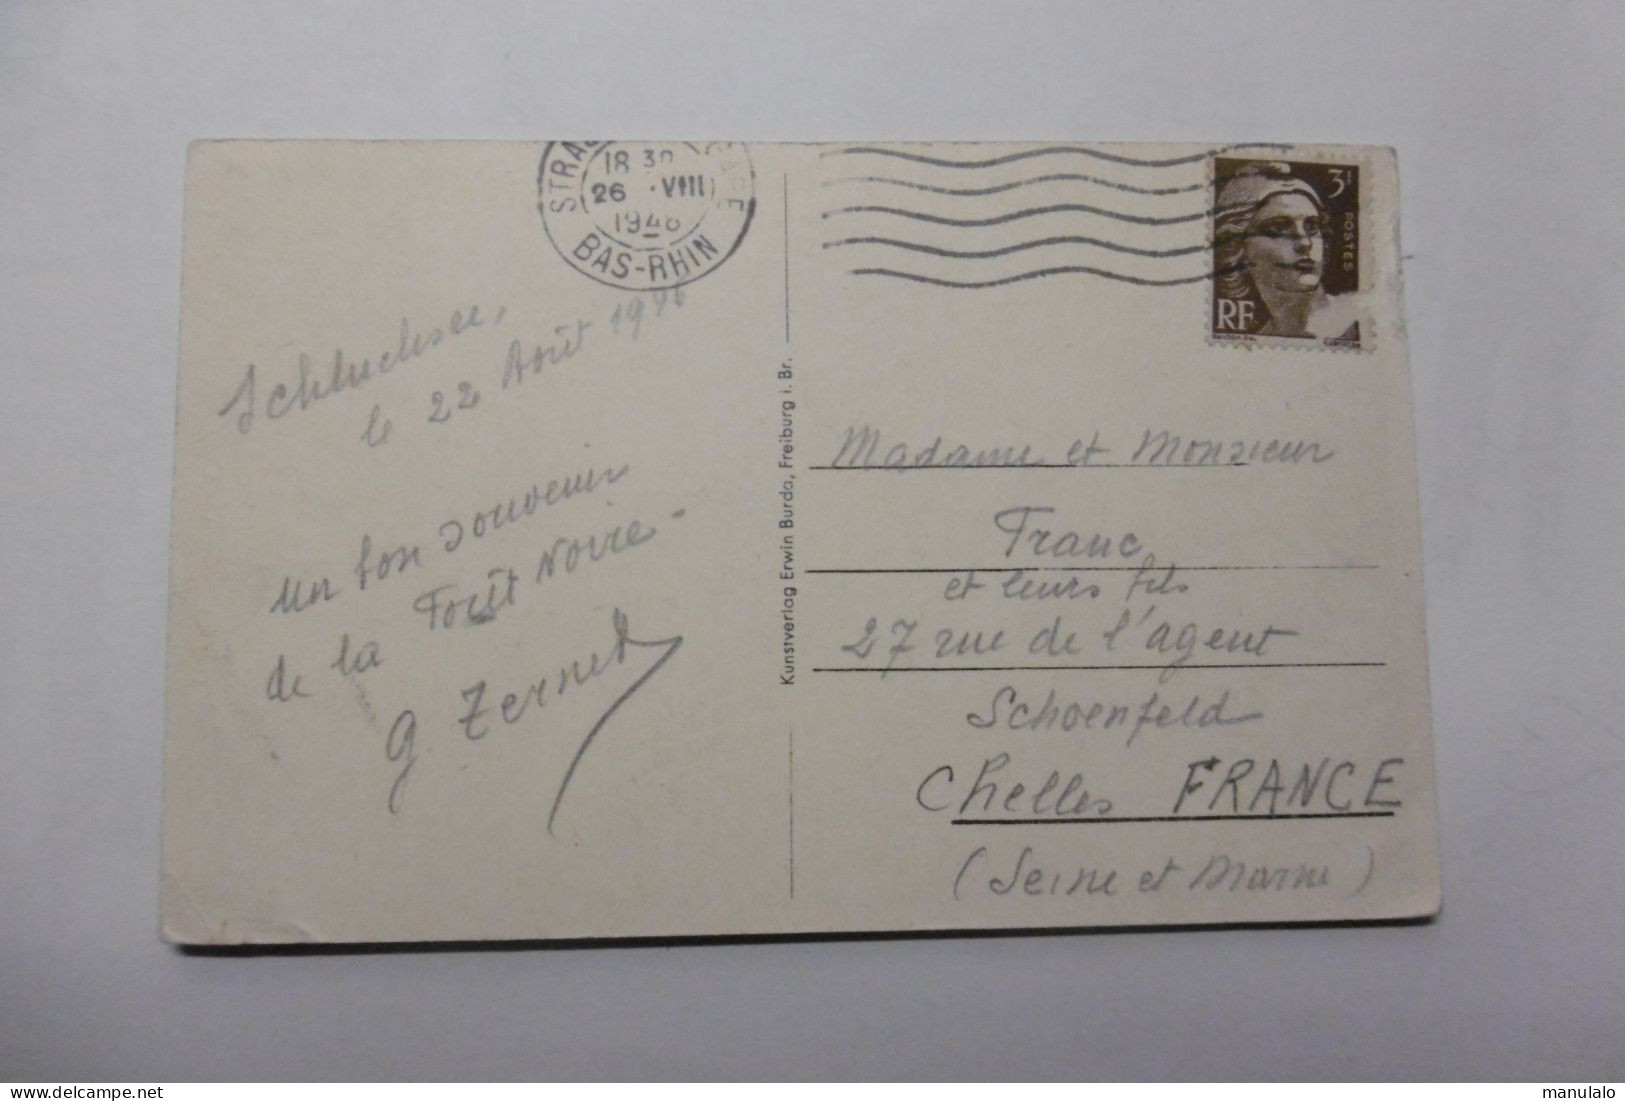 18 30
26 VIII
1946
BAS-RHIN
GARE
3f
POSTES
RF
Schluchsee,
le 22 Août 1946
un bon souvenir
de la Forêt Noire -
G Zernet
Kunstverlag Erwin Burda, Freiburg i. Br.
Madame et Monsieur
Franc
et leurs fils
27 rue de l'agent
Schoenfeld
Chelles FRANCE
(Seine et Marne)
manulalo